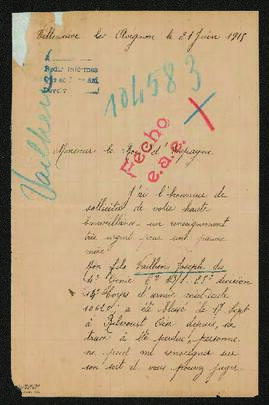 Villeneuve les Avignon le 21 Juin 1915
104583
Fecho
e.a.e.
Monsieur le Roi d'Espagne
J'ai l'honneur de
solliciter de votre haute
bienveillance un renseignement
très urgent pour une pauvre
mère
Mon fils Vailhen Joseph du
4e Génie
division
14e Corps d'armée matricule
a été blessé le 1er Sept
à depuis, sa
trace à été perdue, personne
ne peut me renseigner sur
son sort et vous pouvez juger